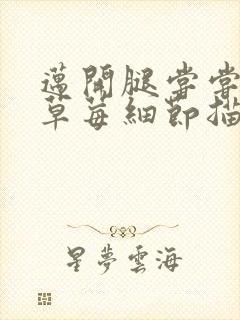 邁開腿嘗嘗
草莓細節描
星夢雲海